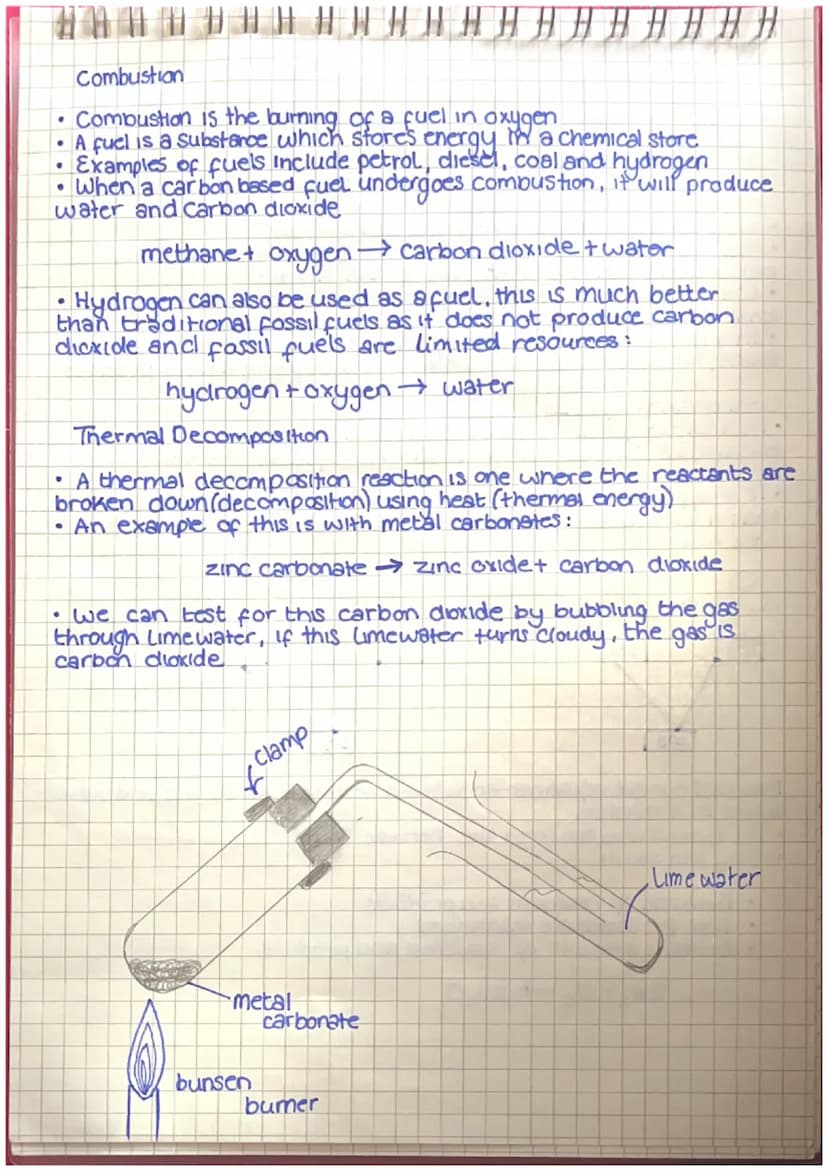 Combustion
• Combustion is the burning of a fuel in oxygen
• A fuel is a substance which stores energy in a chemical store
• Examples of fuels include petrol, diesel, coal and hydrogen
• When a carbon based fuel undergoes combustion, it will produce
water and carbon dioxide
methane + oxygen → carbon dioxide + water
• Hydrogen can also be used as a fuel, this is much better
than traditional fossil fuels as it does not produce carbon
dioxide and fossil fuels are limited resources:
hydrogen + oxygen → water
Thermal Decomposition
• A thermal decomposition reaction is one where the reactants are
broken down (decomposition) using heat (thermal energy)
• An example of this is with metal carbonates:
zinc carbonate → zinc oxide + carbon dioxide
• We can test for this carbon dioxide by bubbling the gas
through limewater, if this limewater turns cloudy, the gas is
carbon dioxide
clamp
lime water
metal
carbonate
bunsen
burner